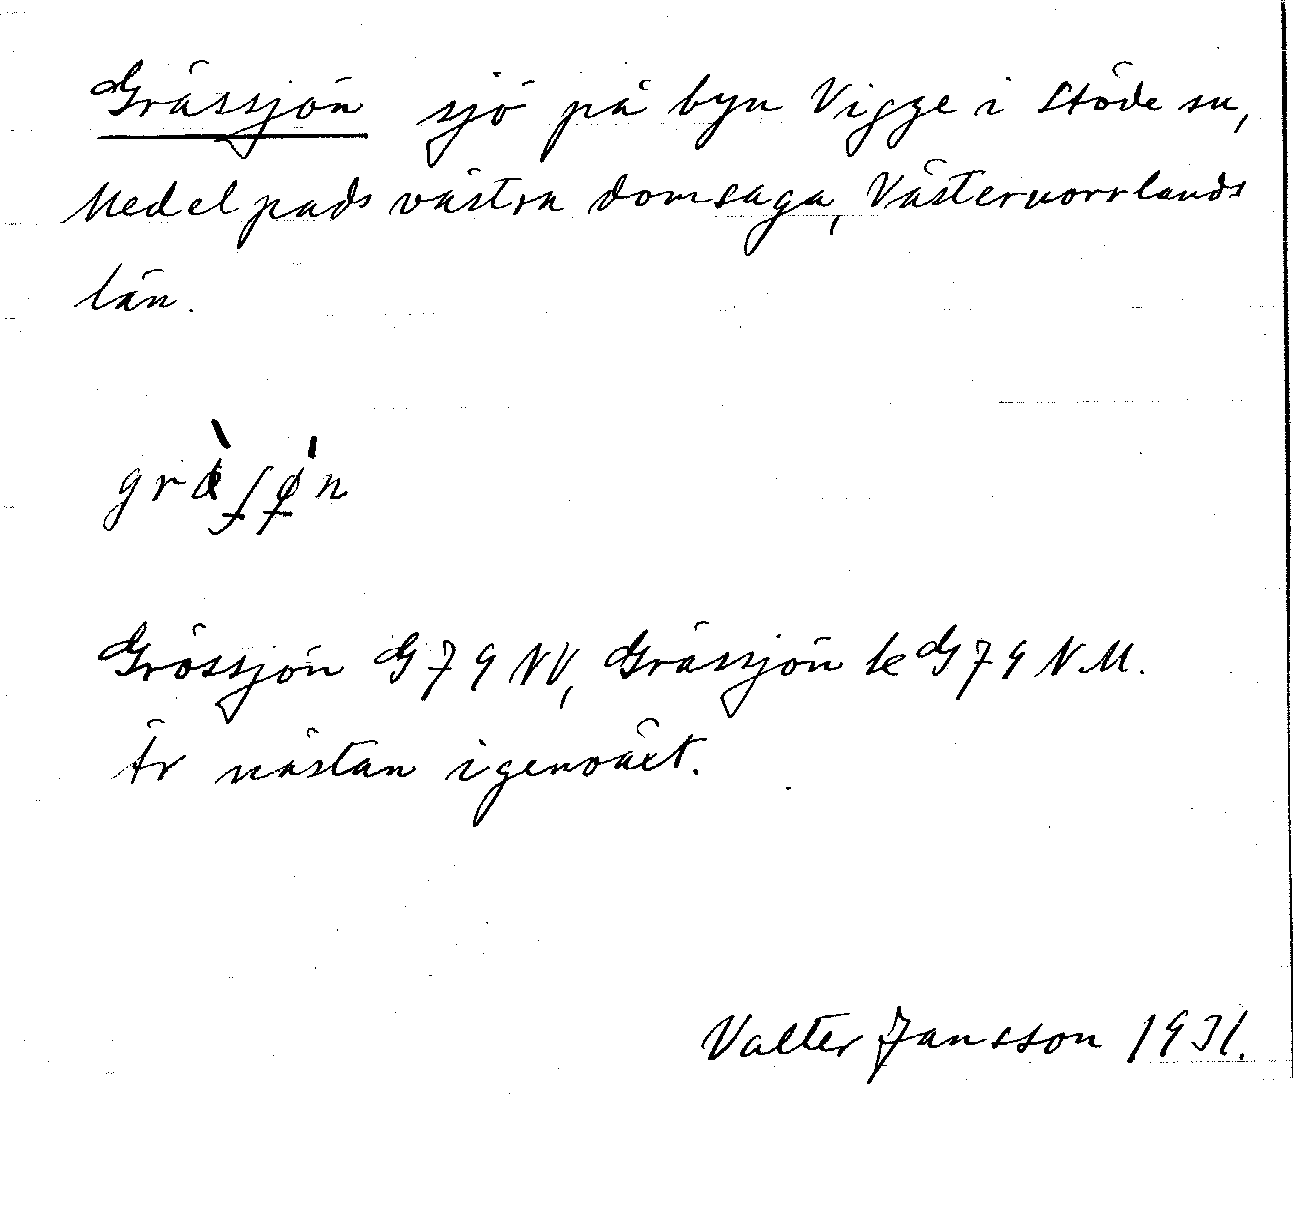 Grässjön sjö på byn Vigge i Stöde sn,
Medelpads västra domsaga, Västernorrlands
län.
Grössjön G 79 NV, Grässjön k G 79 NM.
Är nästan igenväxt.
Valter Jansson 1931.